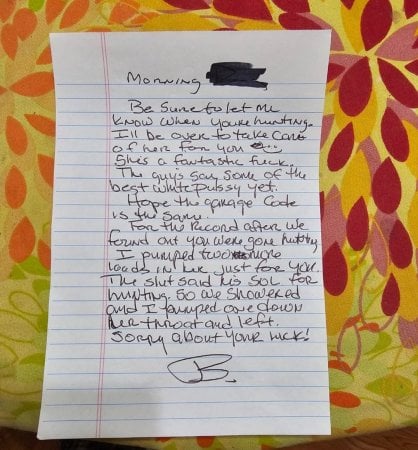 Morning
Be sure to let me
know when you're hunting.
I'll be over to take care
of her for you
She's a fantastic fuck.
The guy's say some of the
best white pussy yet.
Hope the garage code
is the same.
For the record after we
found out you were gone hunting
I pumped two more
loads in her just for you.
The slut said his SOL for
hunting. So we showered
and I pumped one down
her throat and left.
Sorry about your luck!
B.